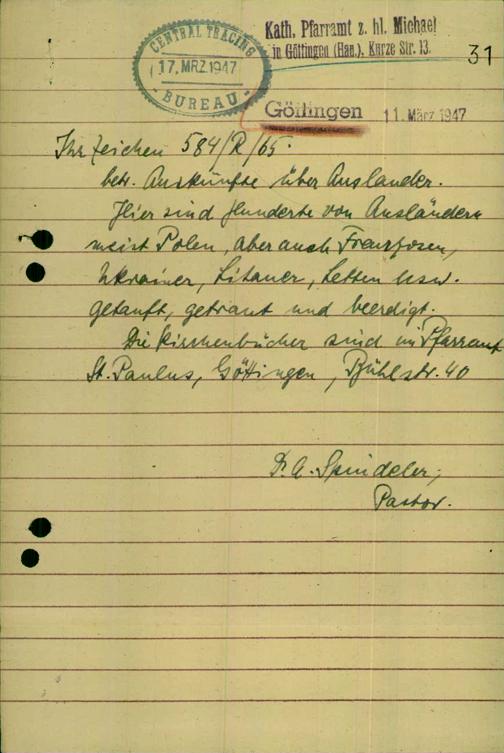 CENTRAL TRACING
17. MRZ. 1947
BUREAU
Kath. Pfarramt z. hl. Michael
in Göttingen (Han.), Kurze Str. 13.
31
Göttingen 11. März 1947
Ihr Zeichen 584/R/65.
betr. Auskünfte über Auslander.
Hier sind Hunderte von Ausländern
meist Polen, aber auch Franzosen,
Ukrainer, Litauer, Letten usw.
getauft, getraut und beerdigt.
Die Kirchenbücher sind im Pfarramt
St. Paulus, Göttingen, Bühlstr. 40
Dr. A. Spindeler,
Pastor.